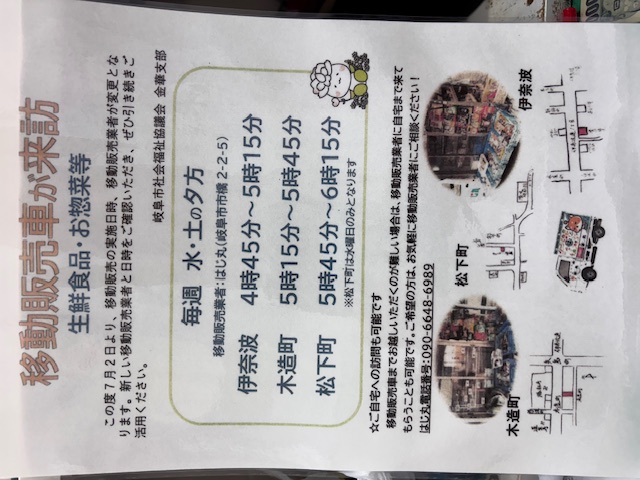 移動販売車が来訪
生鮮食品・お惣菜等
この度7月2日より、移動販売の実施日時、移動販売業者が変更とな
ります。新しい移動販売業者と日時をご確認いただき、ぜひ引き続きご
活用ください。
岐阜市社会福祉協議会 金華支部
毎週 水・土の夕方
移動販売業者:はじ丸(岐阜市市橋2-2-5)
伊奈波 4時45分~5時15分
木造町 5時15分~5時45分
松下町 5時45分~6時15分
※松下町は水曜日のみとなります
☆ご自宅への訪問も可能です
移動販売車までお越しいただくのが難しい場合は、移動販売業者に自宅まで来て
もらうことも可能です。ご希望の方は、お気軽に移動販売業者にご相談ください!
はじ丸電話番号:090-6648-6989
木造町
松下町
伊奈波